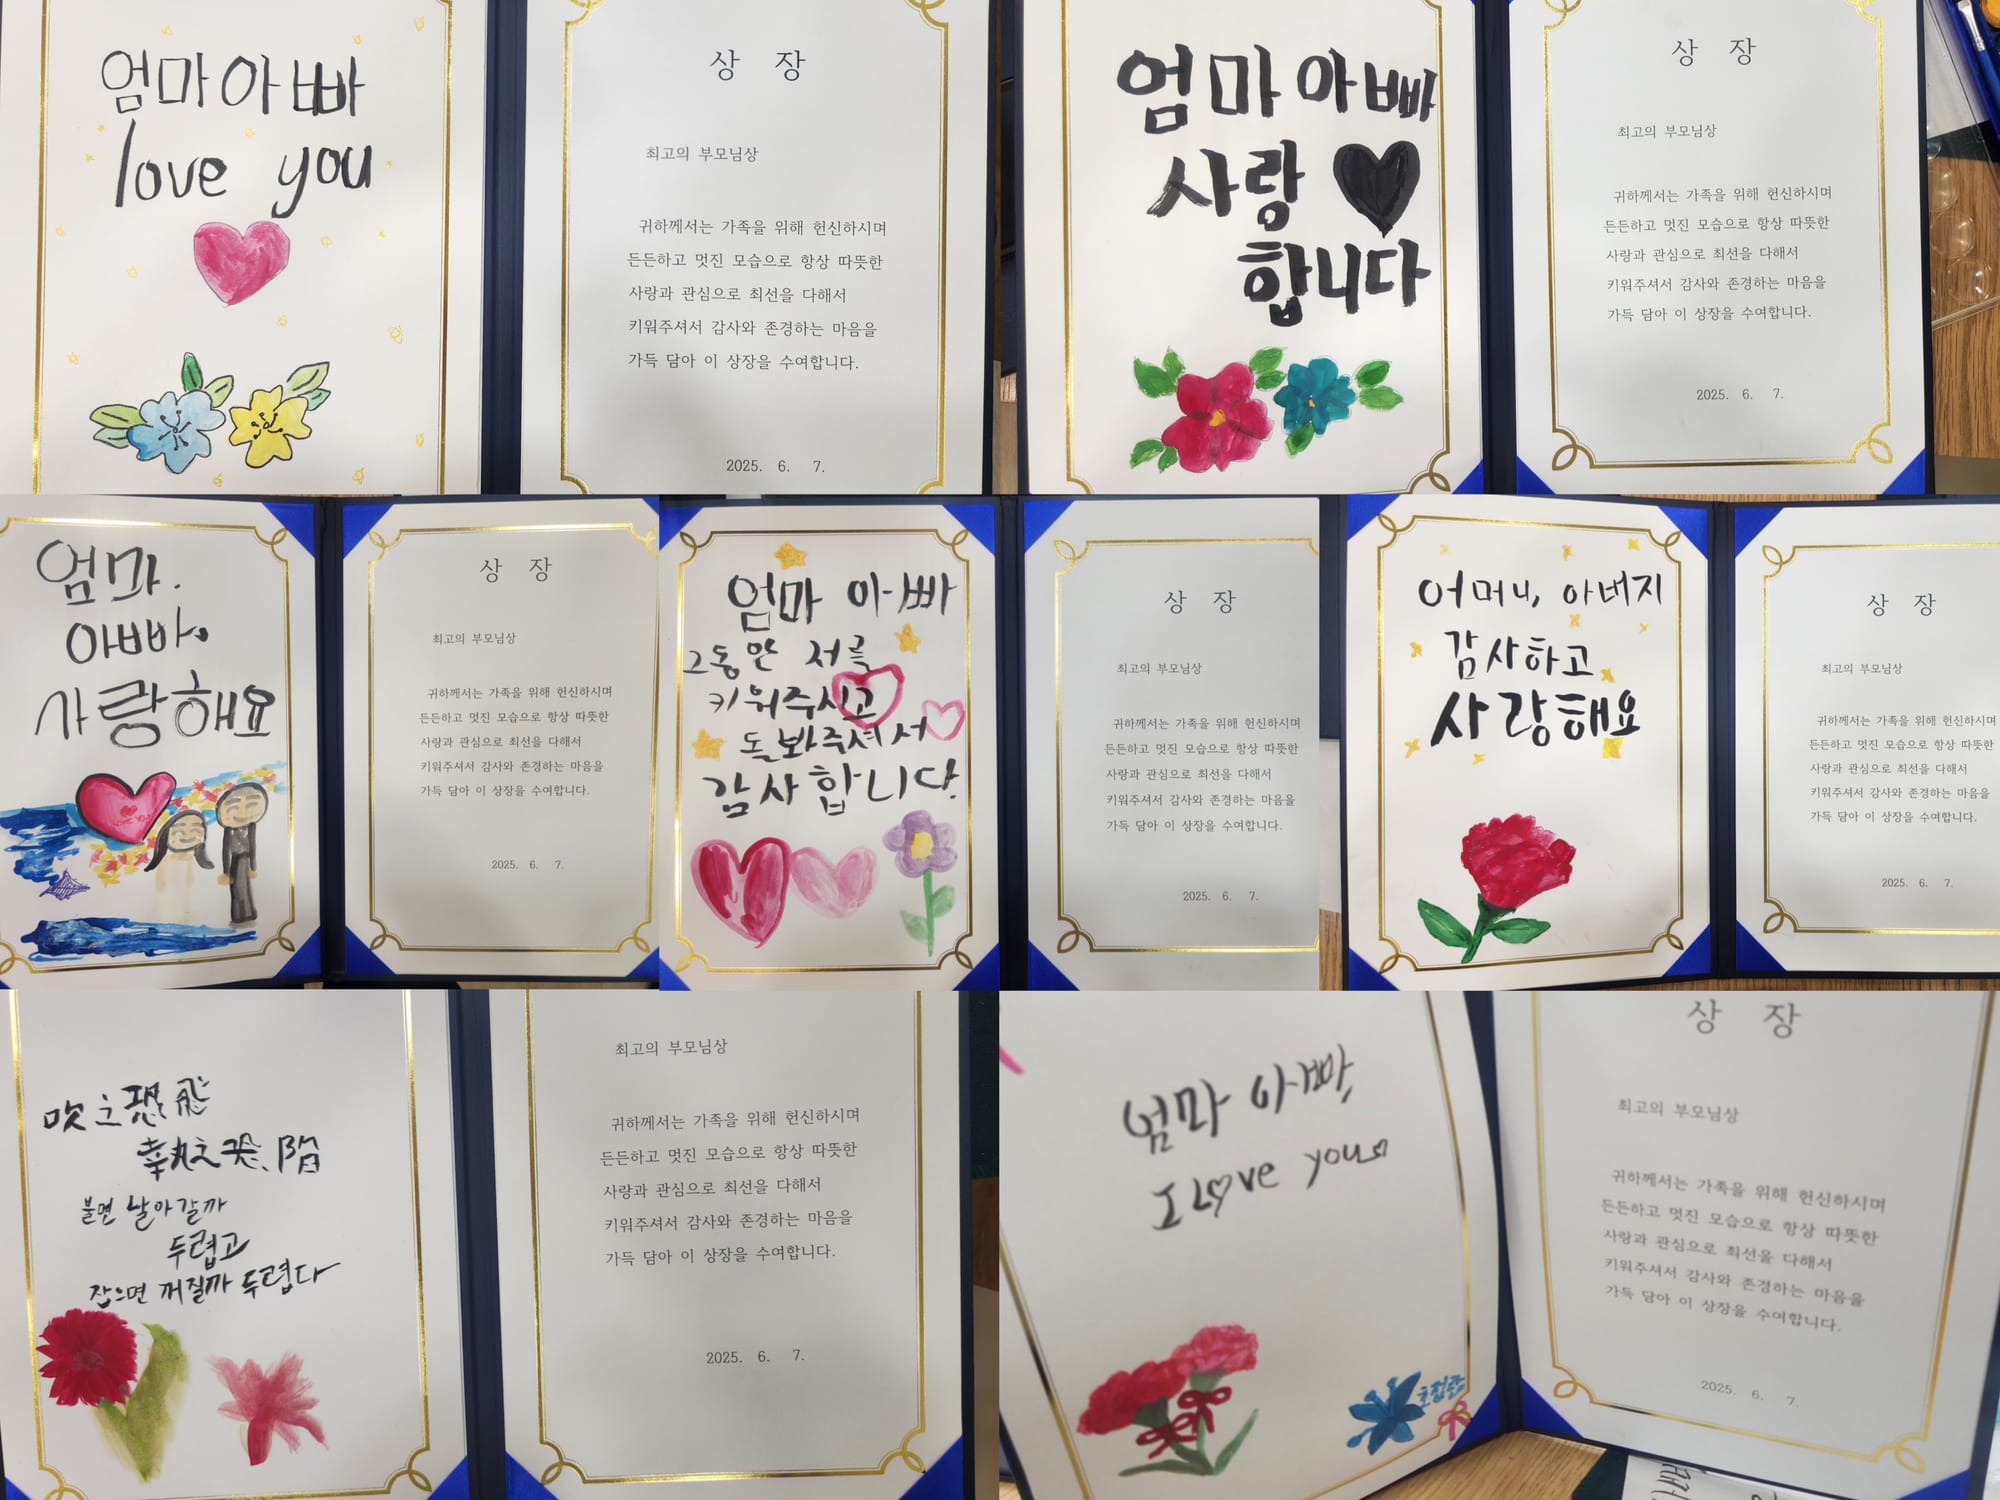 엄마아빠
love you
상 장
최고의 부모님상
귀하께서는 가족을 위해 헌신하시며
든든하고 멋진 모습으로 항상 따뜻한
사랑과 관심으로 최선을 다해서
키워주셔서 감사와 존경하는 마음을
가득 담아 이 상장을 수여합니다.
2025. 6. 7.
엄마아빠
사랑
합니다
상 장
최고의 부모님상
귀하께서는 가족을 위해 헌신하시며
든든하고 멋진 모습으로 항상 따뜻한
사랑과 관심으로 최선을 다해서
키워주셔서 감사와 존경하는 마음을
가득 담아 이 상장을 수여합니다.
2025. 6. 7.
엄마.
아빠.
사랑해요
상 장
최고의 부모님상
귀하께서는 가족을 위해 헌신하시며
든든하고 멋진 모습으로 항상 따뜻한
사랑과 관심으로 최선을 다해서
키워주셔서 감사와 존경하는 마음을
가득 담아 이 상장을 수여합니다.
2025. 6. 7.
엄마 아빠
그동안 저를
키워주시고
돌봐주셔서
감사합니다.
상 장
최고의 부모님상
귀하께서는 가족을 위해 헌신하시며
든든하고 멋진 모습으로 항상 따뜻한
사랑과 관심으로 최선을 다해서
키워주셔서 감사와 존경하는 마음을
가득 담아 이 상장을 수여합니다.
2025. 6. 7.
어머니, 아버지
감사하고
사랑해요
상 장
최고의 부모님상
귀하께서는 가족을 위해 헌신하시며
든든하고 멋진 모습으로 항상 따뜻한
사랑과 관심으로 최선을 다해서
키워주셔서 감사와 존경하는 마음을
가득 담아 이 상장을 수여합니다.
2025. 6. 7.
吹之恐飛
執之恐陷
불면 날아갈까
두렵고
잡으면 꺼질까 두렵다
최고의 부모님상
귀하께서는 가족을 위해 헌신하시며
든든하고 멋진 모습으로 항상 따뜻한
사랑과 관심으로 최선을 다해서
키워주셔서 감사와 존경하는 마음을
가득 담아 이 상장을 수여합니다.
2025. 6. 7.
엄마 아빠,
I Love you
상 장
최고의 부모님상
귀하께서는 가족을 위해 헌신하시며
든든하고 멋진 모습으로 항상 따뜻한
사랑과 관심으로 최선을 다해서
키워주셔서 감사와 존경하는 마음을
가득 담아 이 상장을 수여합니다.
2025. 6. 7.